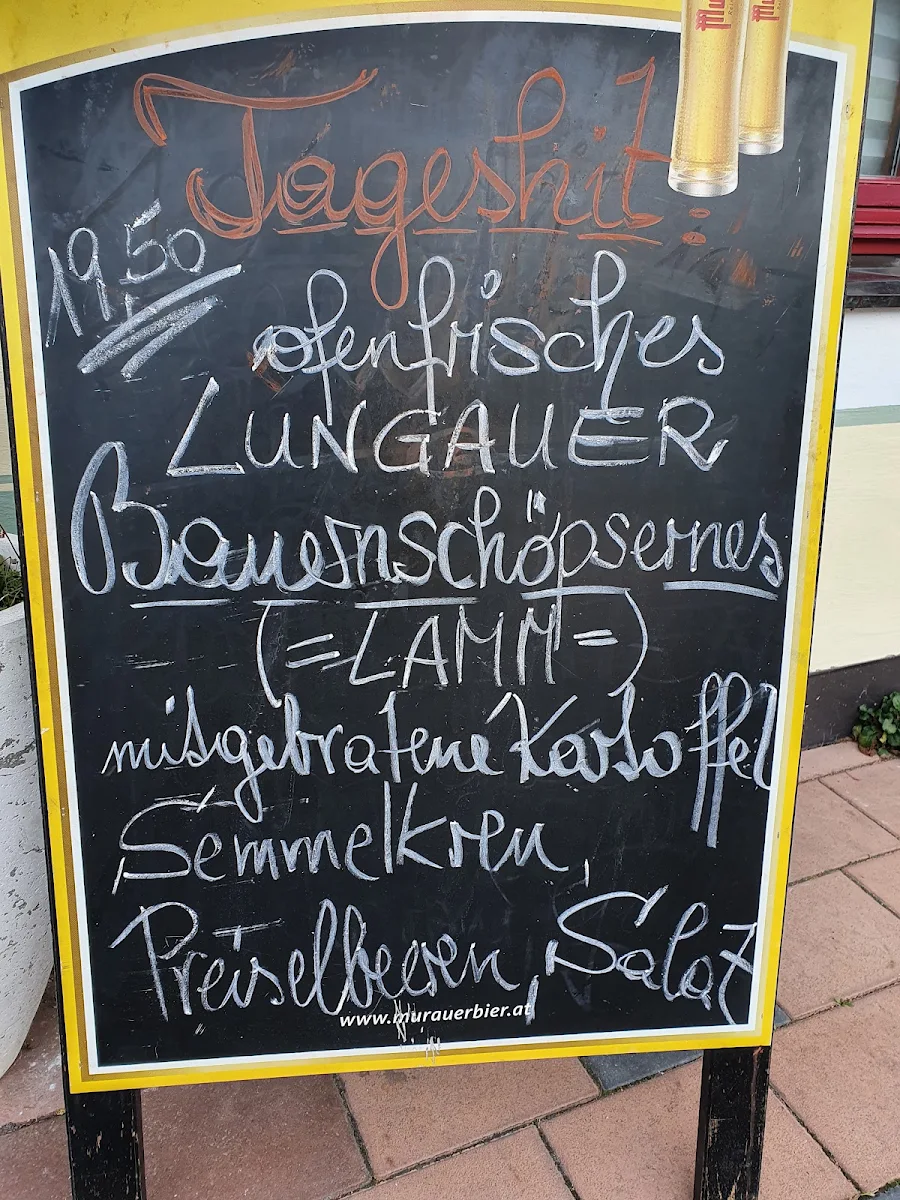 Tageshit:
19,50
ofenfrisches
LUNGAUER
Bauernschöpsernes
(=LAMM=)
mitgebratene Kartoffel
Semmelkren,
Preiselbeeren, Salat
www.murauerbier.at